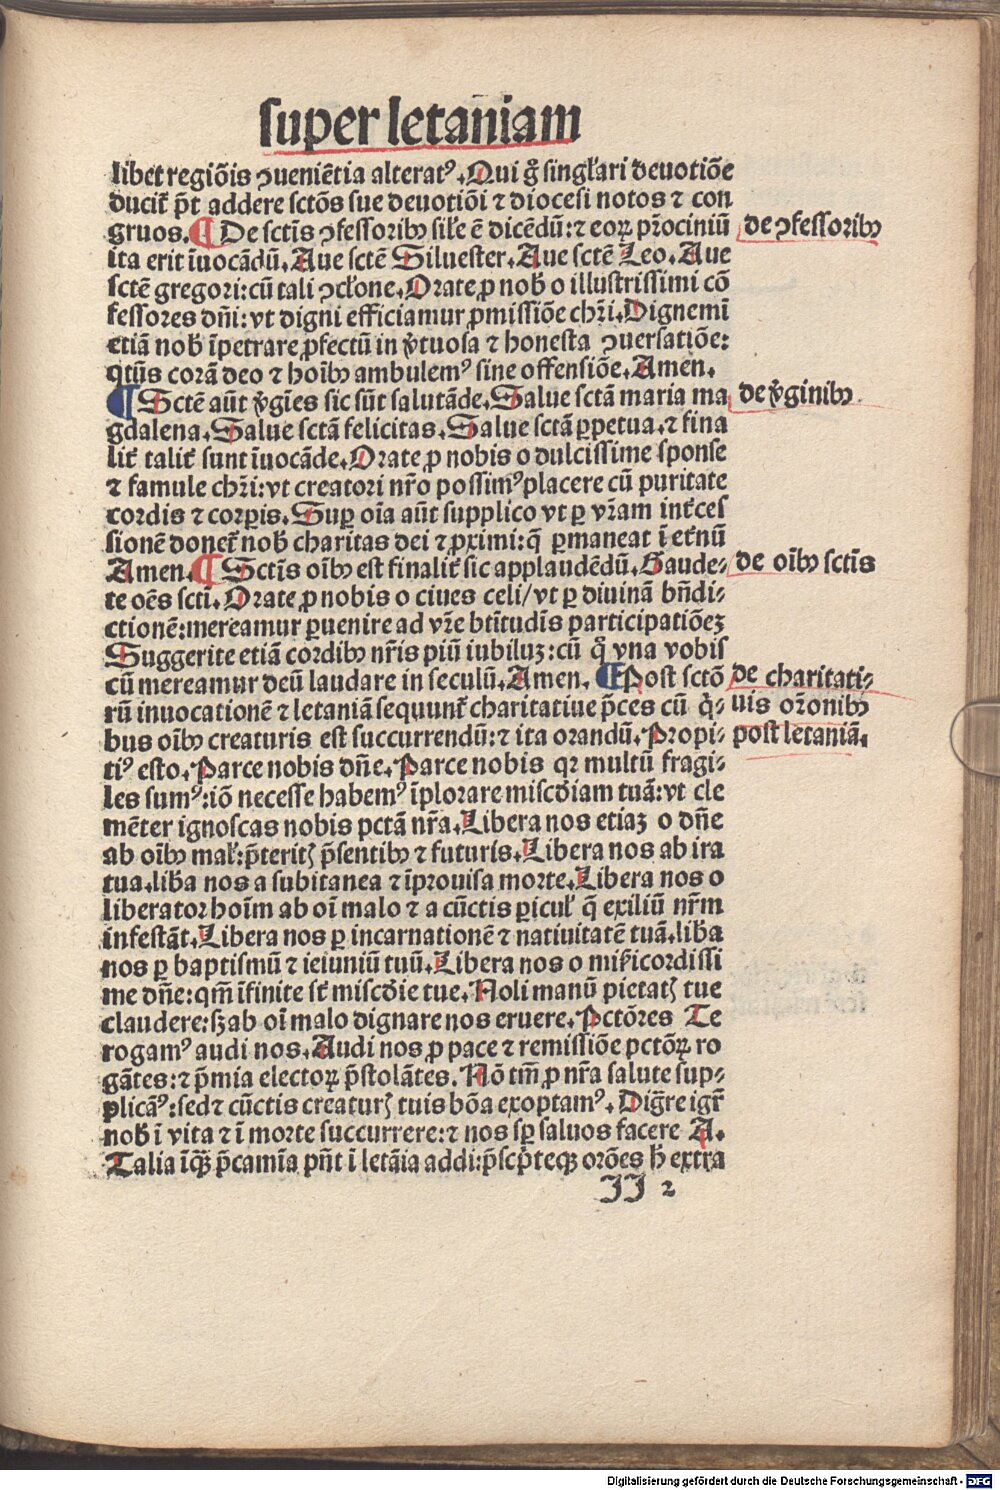 super letaniam
libet regiõis ꝯueniẽtia alteratꝰ. Qui g̃ singl'ari deuotiõe
ducit᷑ p̃t addere sctõs sue deuotiõi ⁊ diocesi notos ⁊ con
gruos. ¶ De sctĩs ꝯfessoribꝰ sil'e ẽ dicẽdũ: ⁊ eoꝝ pr̃ociniũ
de ꝯfessoribꝰ
ita erit ĩuocãdũ. Aue sctẽ Siluester. Aue sctẽ Leo. Aue
sctẽ gregori: cũ tali ꝯcl'one. Orate ꝓ nob̃ o illustrissimi cõ
fessores dñi: vt digni efficiamur ꝓmissiõe chr̃i. Dignemĩ
etiã nob̃ ĩpetrare ꝓfectũ in ṽtuosa ⁊ honesta ꝯuersatiõe:
qtũs corã deo ⁊ hoĩbꝰ ambulemꝰ sine offensiõe. Amen.
¶ Sctẽ aũt ṽgĩes sic sũt salutãde. Salue sctã maria ma
de ṽginibꝰ.
gdalena. Salue sctã felicitas. Salue sctã ꝑpetua. ⁊ fina
lit᷑ talit᷑ sunt ĩuocãde. Orate ꝓ nobis o dulcissime sponse
⁊ famule chr̃i: vt creatori nr̃o possimꝰ placere cũ puritate
cordis ⁊ corꝑis. Suꝑ oĩa aũt supplico vt ꝑ vr̃am int᷑ces
sionẽ donet᷑ nob̃ charitas dei ⁊ ꝓximi: q̃ ꝑmaneat ĩ et᷑nũ
Amen. ¶ Sctĩs oĩbꝰ est finalit᷑ sic applaudẽdũ. Gaude⸗
de oĩbꝰ sctĩs
te oẽs scti. Orate ꝓ nobis o ciues celi/ vt ꝑ diuinã bñdi⸗
ctionẽ: mereamur ꝑuenire ad vr̃e btĩtudĩs participatiõeʒ
Suggerite etiã cordibꝰ nr̃is piũ iubiluʒ: cũ q̃ vna vobis
cũ mereamur deũ laudare in seculũ. Amen. ¶ Post sctõ
de charitati⸗
rũ inuocationẽ ⁊ letaniã sequunt᷑ charitatiue p̃ces cũ q̃⸗
uis or̃onibꝰ
bus oĩbꝰ creaturis est succurrendũ: ⁊ ita orandũ. Propi⸗
post letaniã.
tiꝰ esto. Parce nobis dñe. Parce nobis qꝛ multũ fragi⸗
les sumꝰ: iõ necesse habemꝰ ĩplorare miscd̃iam tuã: vt cle
mẽter ignoscas nobis pctã nr̃a. Libera nos etiaʒ o dñe
ab oĩbꝰ mal': p̃terit̉ p̃sentibꝰ ⁊ futuris. Libera nos ab ira
tua. lib̃a nos a subitanea ⁊ ĩprouisa morte. Libera nos o
liberator hoĩm ab oĩ malo ⁊ a cũctis ꝑicul' q̃ exiliũ nr̃m
infestãt. Libera nos ꝑ incarnationẽ ⁊ natiuitatẽ tuã. lib̃a
nos ꝑ baptismũ ⁊ ieiuniũ tuũ. Libera nos o mis̃icordissi
me dñe: qm̃ ĩfinite st̃ miscd̃ie tue. Noli manũ pietat̉ tue
claudere: sʒ ab oĩ malo dignare nos eruere. Pctõres Te
rogamꝰ audi nos. Audi nos ꝓ pace ⁊ remissiõe pctõꝝ ro
gãtes: ⁊ p̃mia electoꝝ p̃stolãtes. Nõ tm̃ ꝓ nr̃a salute sup⸗
plicãꝰ: sed ⁊ cũctis creatur̉ tuis bõa exoptamꝰ. Dig̃re igr̃
nob̃ ĩ vita ⁊ ĩ morte succurrere: ⁊ nos sꝑ saluos facere A.
Talia ĩqꝫ p̃camĩa pñt ĩ letãia addi: p̃scp̃teqꝫ orões h̃ extra
JJ 2
Digitalisierung gefördert durch die Deutsche Forschungsgemeinschaft - DFG